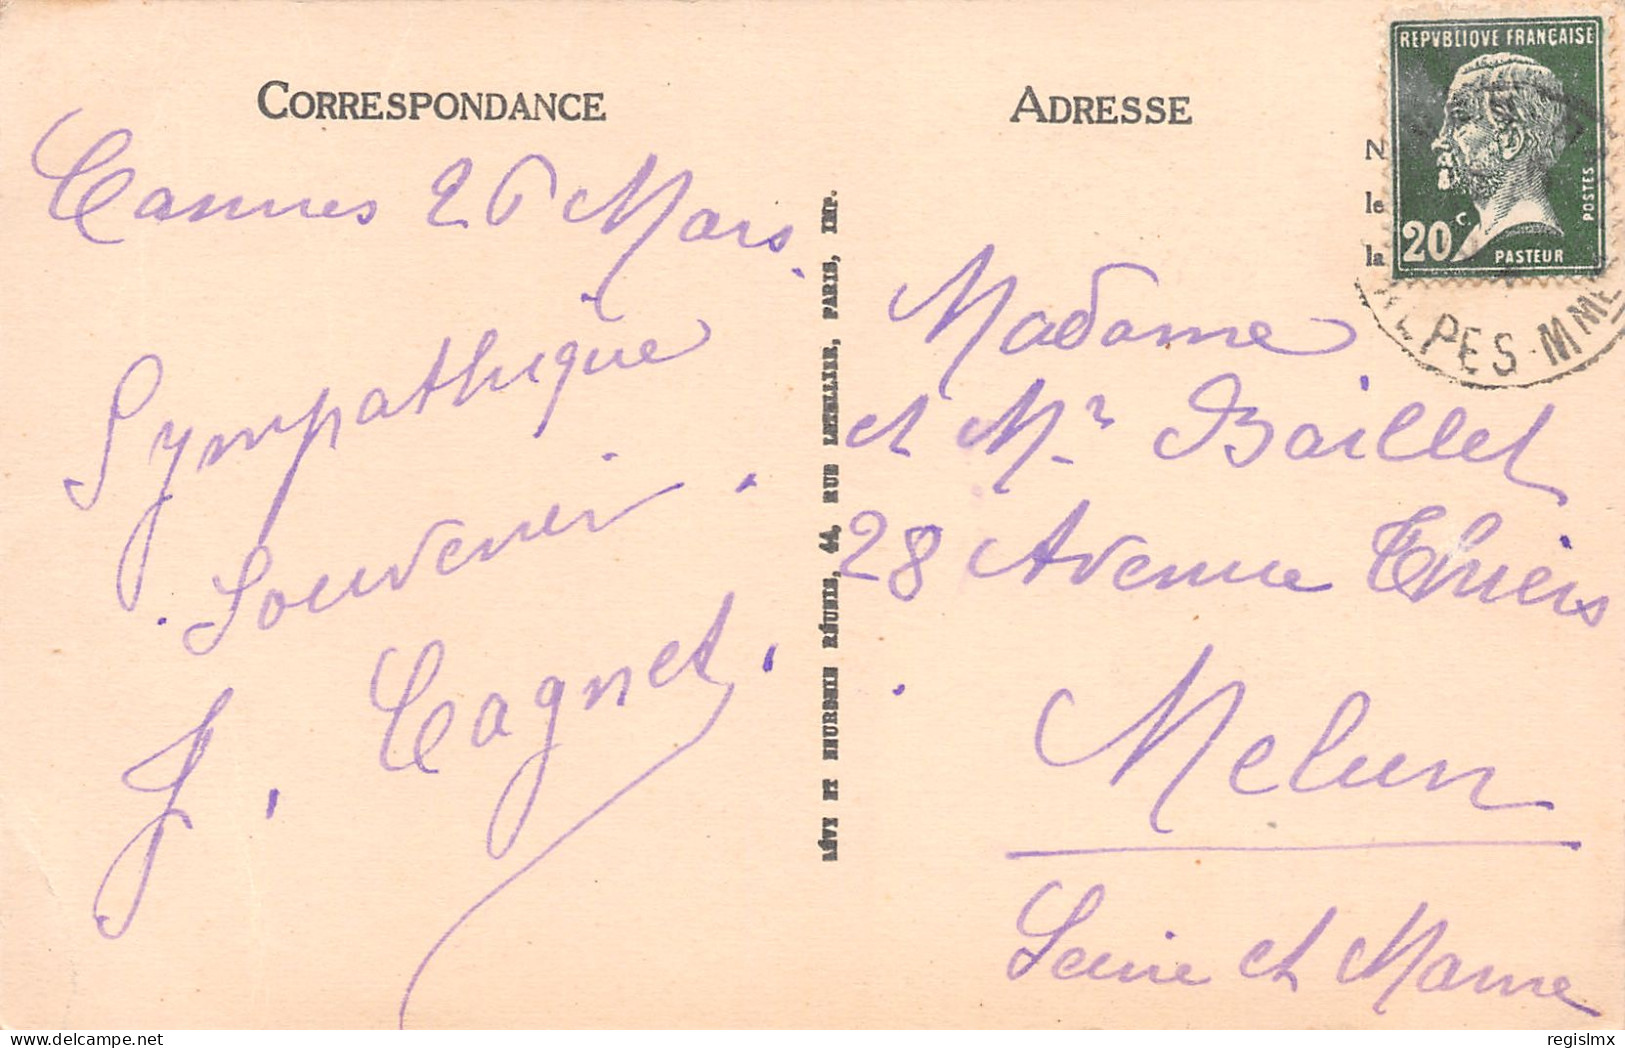 CORRESPONDANCE
Cannes 26 Mars.
Sympathique
Souvenir.
J. Cagnet.
LÉVY ET NEURDEIN RÉUNIS, 44, RUE LETELLIER, PARIS, IMP.
ADRESSE
Madame
et Mr Baillet
28 Avenue Thiers
Melun
Seine et Marne
REPVBLIQVE FRANÇAISE
POSTES
20 c.
PASTEUR
N
le
la
ALPES-MME
regislmx